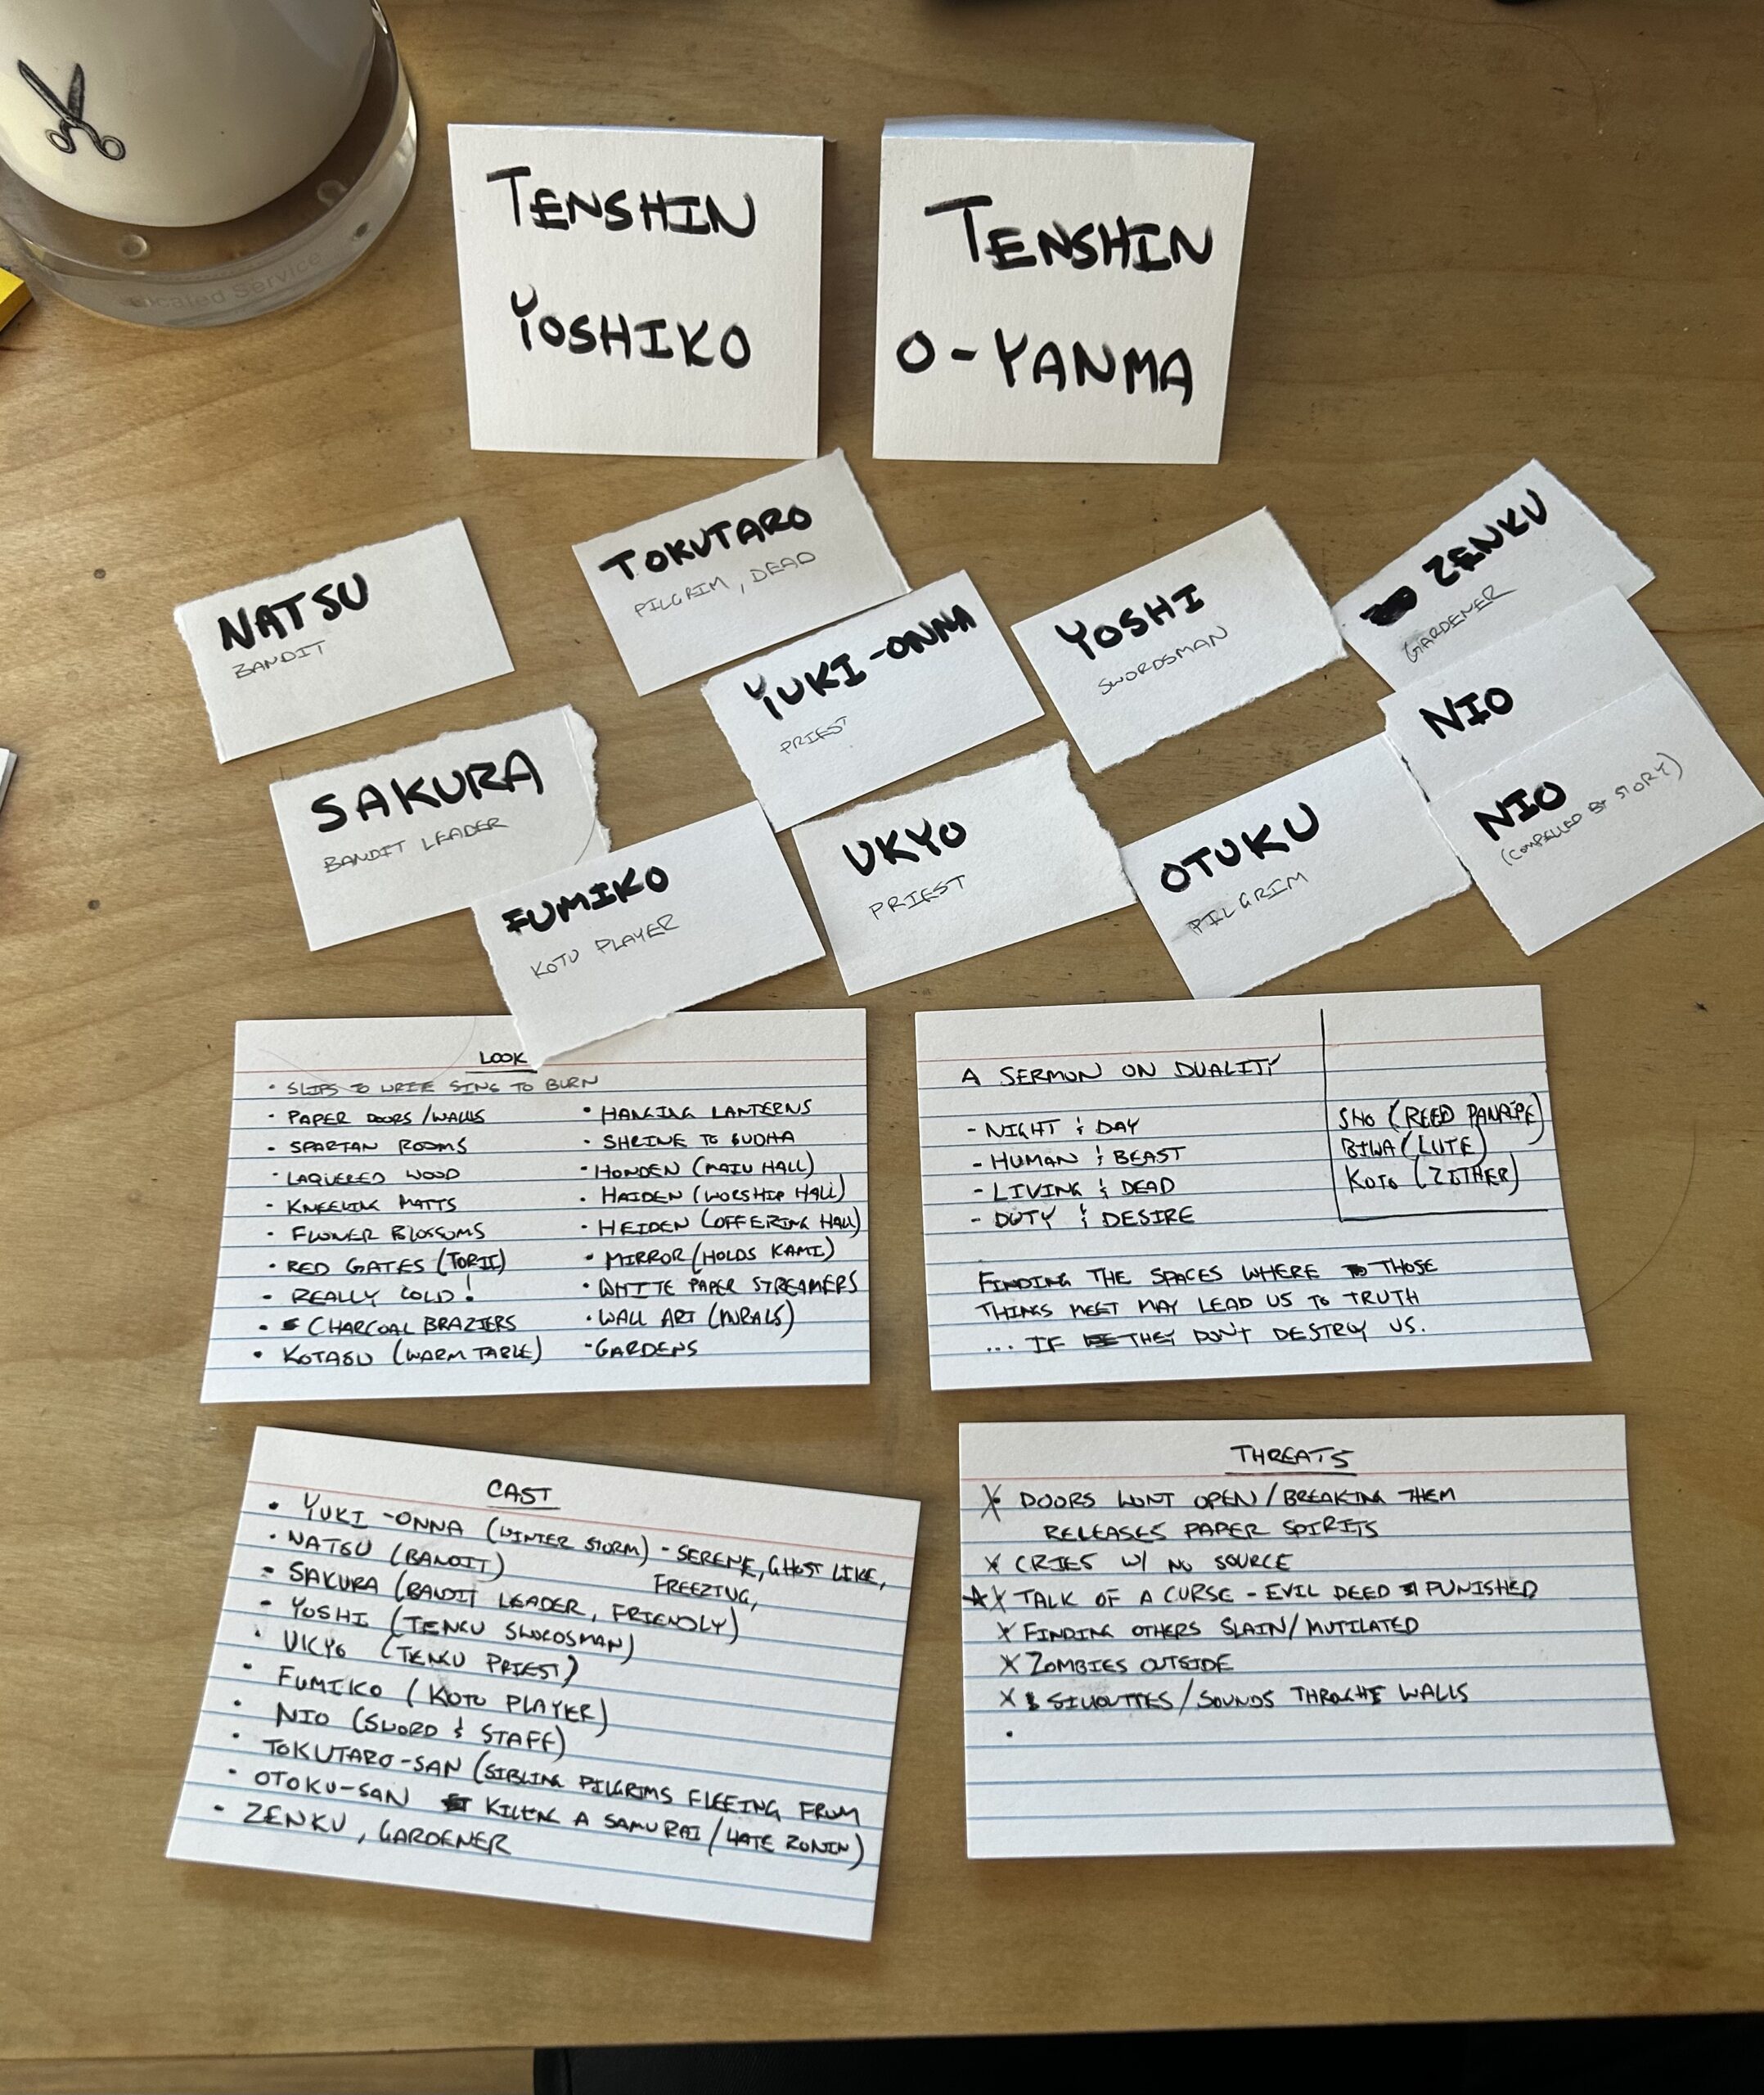 icated Service
TENSHIN
YOSHIKO
TENSHIN
O-YANMA
NATSU
BANDIT
TOKUTARO
PILGRIM, DEAD
YUKI-ONNA
PRIEST
YOSHI
SWORDSMAN
ZENKU
GARDENER
NIO
NIO
(COMPELLED BY STORY)
SAKURA
BANDIT LEADER
FUMIKO
KOTO PLAYER
UKYO
PRIEST
OTUKU
PILGRIM
LOOK
• SLIPS TO WRITE SINS TO BURN
• PAPER DOORS/WALLS
• SPARTAN ROOMS
• LAQUERED WOOD
• KNEELING MATTS
• FLOWER BLOSSOMS
• RED GATES (TORII)
• REALLY COLD!
• CHARCOAL BRAZIERS
• KOTASU (WARM TABLE)
• HANGING LANTERNS
• SHRINE TO BUDHA
• HONDEN (MAIN HALL)
• HAIDEN (WORSHIP HALL)
• HEIDEN (OFFERING HALL)
• MIRROR (HOLDS KAMI)
• WHITE PAPER STREAMERS
• WALL ART (MURALS)
• GARDENS
A SERMON ON DUALITY
- NIGHT & DAY
- HUMAN & BEAST
- LIVING & DEAD
- DUTY & DESIRE
FINDING THE SPACES WHERE THOSE
THINGS MEET MAY LEAD US TO TRUTH
... IF THEY DON'T DESTROY US.
SHO (REED PANPIPE)
BIWA (LUTE)
KOTO (ZITHER)
CAST
• YUKI-ONNA (WINTER STORM) - SERENE, GHOST LIKE,
FREEZING,
• NATSU (BANDIT)
• SAKURA (BANDIT LEADER, FRIENDLY)
• YOSHI (TENGU SWORDSMAN)
• UKYO (TENGU PRIEST)
• FUMIKO (KOTO PLAYER)
• NIO (SWORD & STAFF)
• TOKUTARO-SAN (SIBLING PILGRIMS FLEEING FROM
• OTOKU-SAN KILLING A SAMURAI/HATE RONIN)
• ZENKU, GARDENER
THREATS
X DOORS WONT OPEN/BREAKING THEM
RELEASES PAPER SPIRITS
X CRIES W/ NO SOURCE
X TALK OF A CURSE - EVIL DEED PUNISHED
X FINDING OTHERS SLAIN/MUTILATED
X ZOMBIES OUTSIDE
X SILHOUTTES/SOUNDS THROUGH WALLS
•